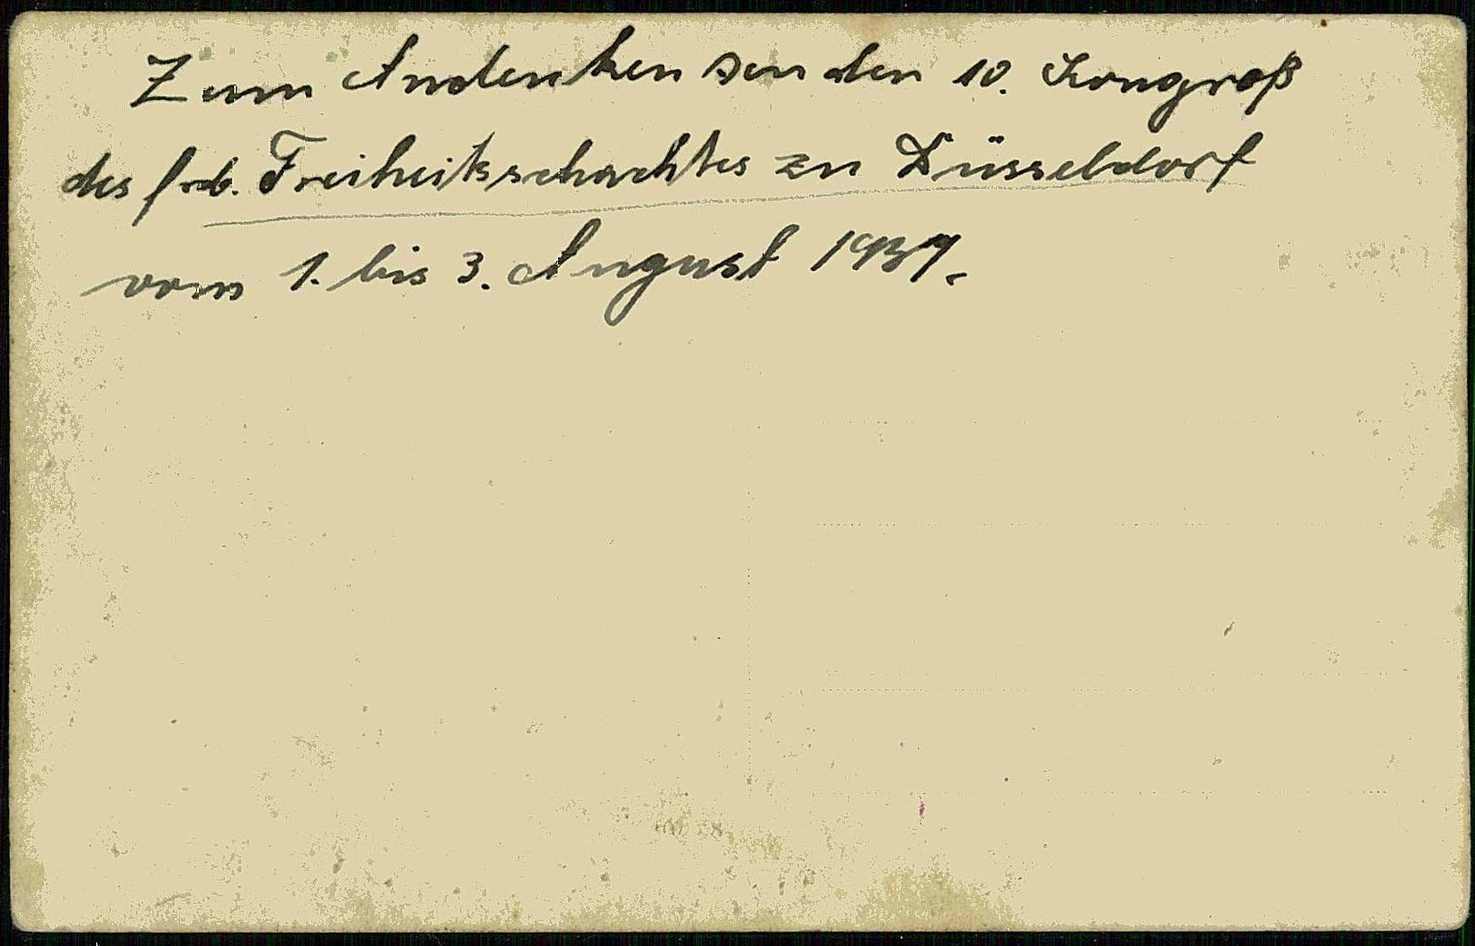 Zum Andenken an den 10. Kongroß
des frd. Freiheitsschachtes zu Düsseldorf
vom 1. bis 3. August 1937.